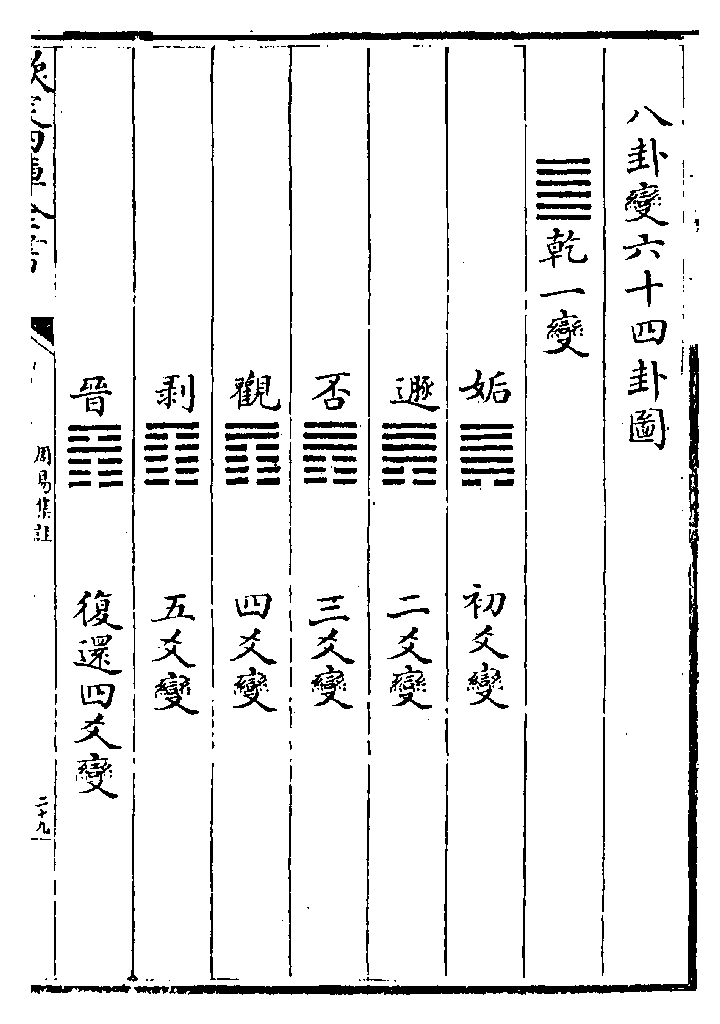 八卦變六十四卦圖
䷀乾一變
姤䷫初爻變
遯䷠二爻變
否䷋三爻變
觀䷓四爻變
剥䷖五爻變
晉䷢復還四爻變
欽定四庫全書
周易集註
二十九